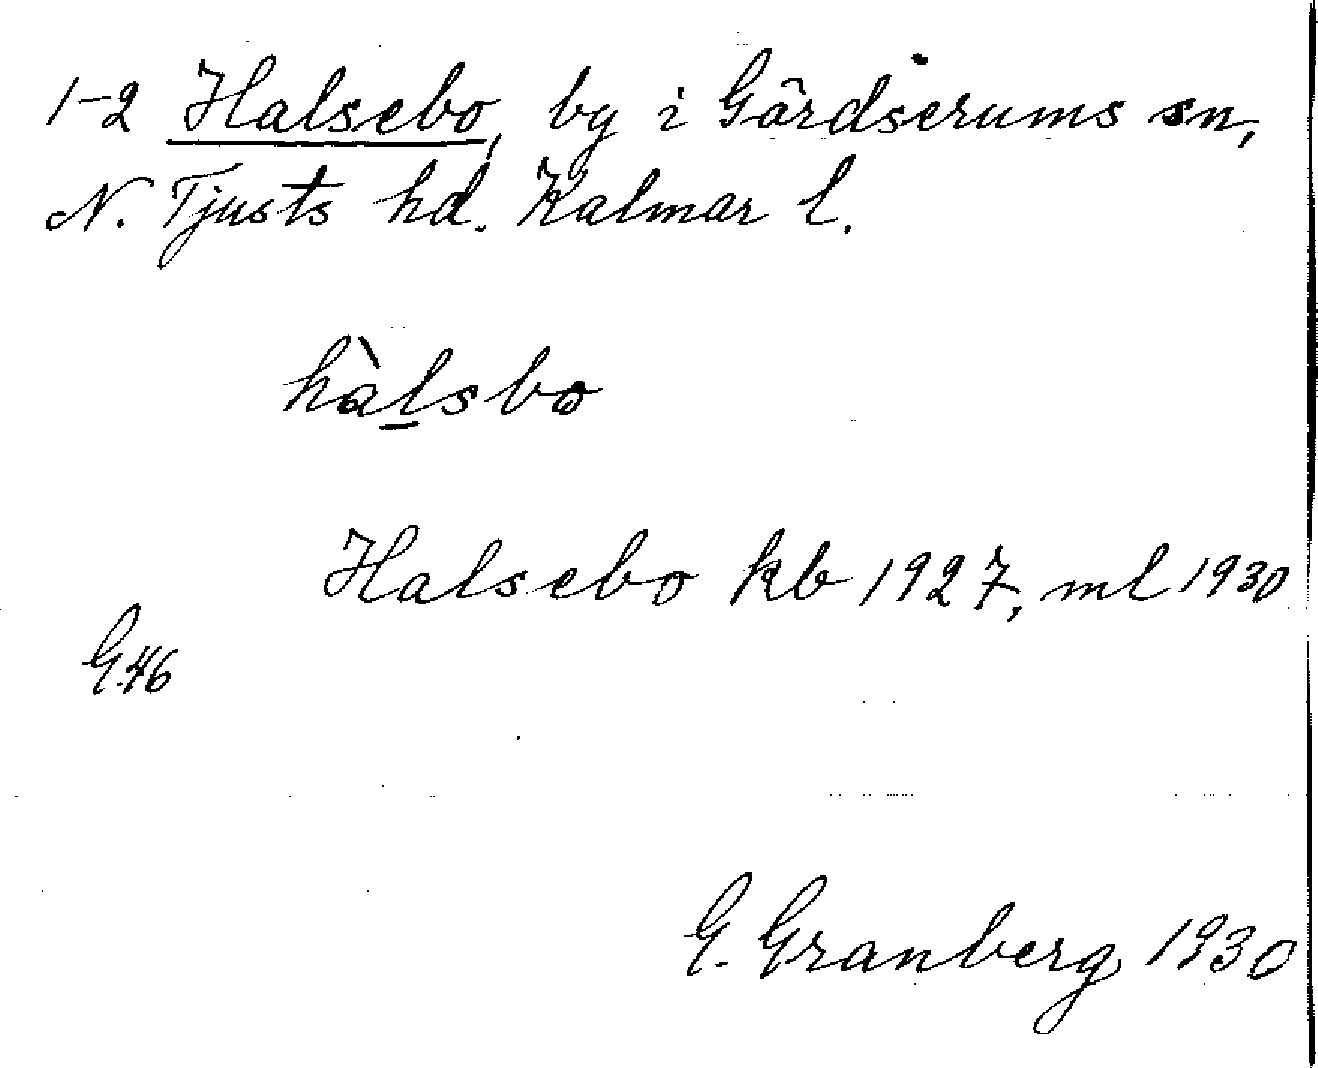 1-2 Halsebo, by i Gärdserums sn,
N. Tjusts hd. Kalmar l.
hàlsbo
Halsebo kb 1927, ml 1930
G.46
G. Granberg 1930